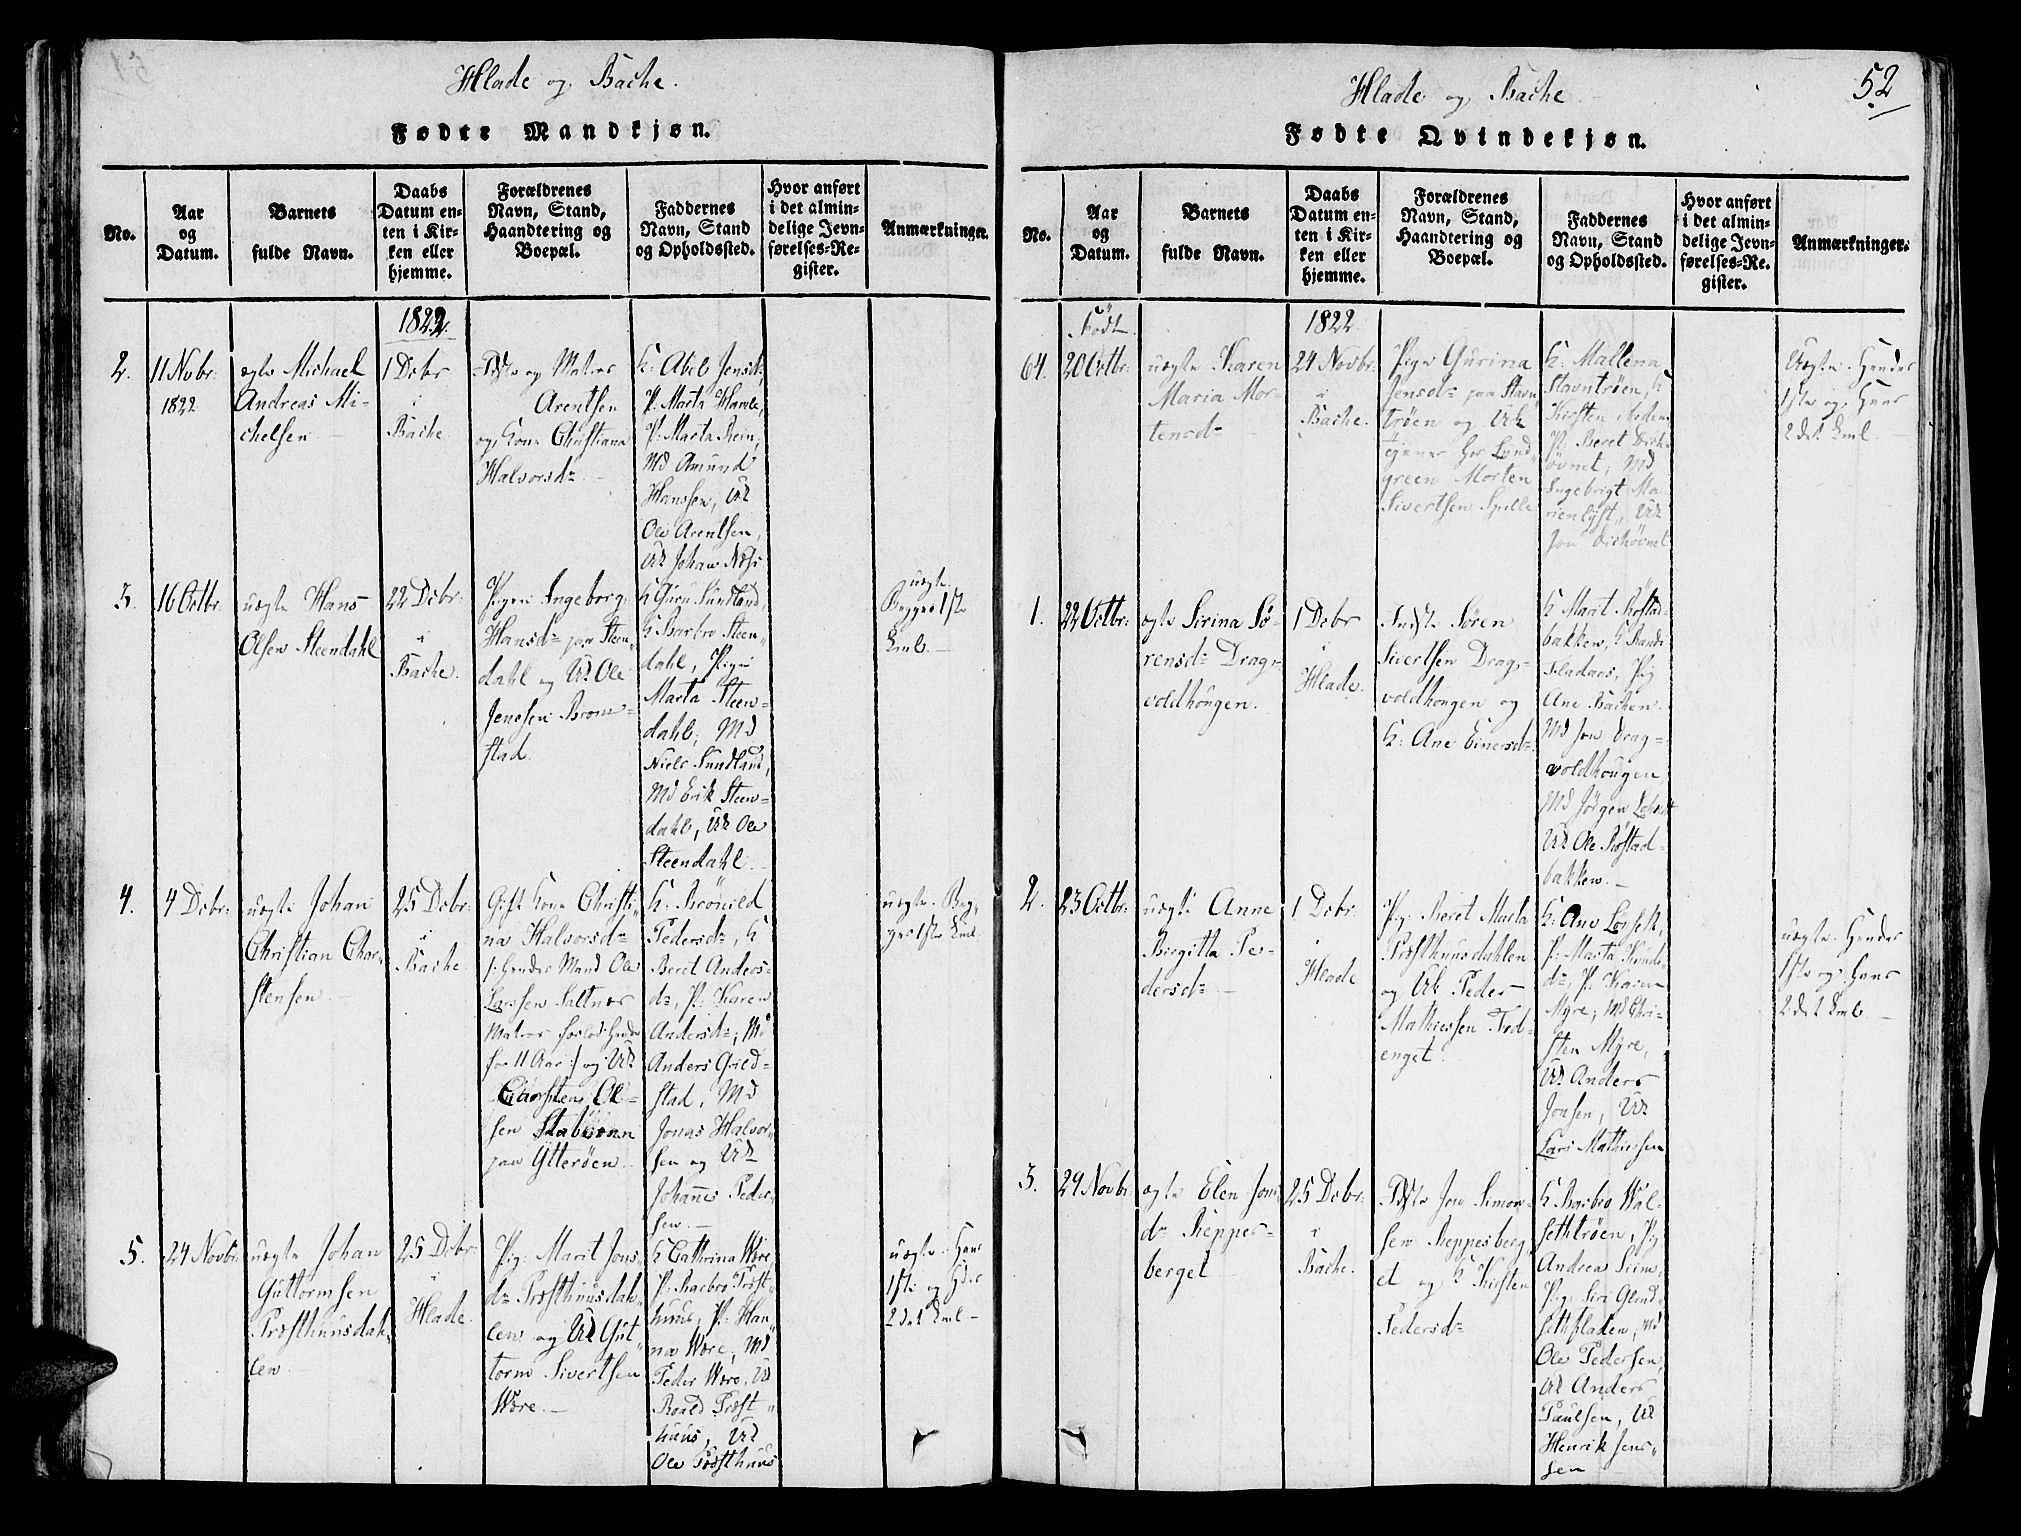 Hlade og Bache.
Fødte Mandkjøn.
No.
Aar
og
Datum.
Barnets
fulde Navn.
Daabs
Datum en-
ten i Kir-
ken eller
hjemme.
Forældrenes
Navn, Stand,
Haandtering og
Boepæl.
Faddernes
Navn, Stand
og Opholdssted.
Hvor anført
i det almin-
delige Jevn-
førelses-Re-
gister.
Anmærkninger.
1822.
2.
11 Novbr:
1822
ægte Michael
Andreas Mi-
chelsen
1 Debr
i
Bache.
og Matros
Arentsen
og Kone Christiana
Halvorsd
K: Abel Jensd,
P: Marta
P: Marta Rein,
Md Amund
Hanssen, Uk
Ole Arentsen,
Uk Johan Næss
3.
16 Octbr:
uægte Hans
Olsen Steendahl
22 Debr:
i
Bache.
Pigen Ingeborg
Hansd paa Steen
dahl og Uk Ole
Jenssen Brom-
stad.
K Guru Sundland,
K Barbro Steen-
dahl, Pigen
Marta Steen-
dahl; Md
Niels Sundland,
Md Erik Steen-
dahl, Uk Ole
Steendahl.
uægte.
Begges 1ste
Leml.
4.
4 Debr:
uægte Johan
Christian Char-
stensen
25 Debr:
i
Bache.
Gift Kone Christi-
na Halvorsd
/: hendes Mand Ole
Larssen Saltnes
Matros forlod hende
for 11 Aar :/ og Uk
Carsten Ol-
sen
paa Ytterøen
K: Brønild
Pedersd, K
Beret Anders-
d, P: Karen
Andersd; Md
Anders Qvild-
stad, Md
Jonas Halvor-
sen og Uk
Johannes Peder-
sen.
uægte. Beg-
ges 1ste Leml.
5.
24 Novbr:
uægte Johan
Guttormsen
Præsthuusdah-
len
25 Debr:
i
Hlade.
Pig: Marit Jons
d Præsthuusdah-
len og Uk Gut-
torm Sivertsen
Være.
K Cathrina Være,
P: Barbro Præst-
huus, P: Han-
na Være, Md
Peder Være, Uk
Roald Præst-
huus, Uk
Ole Præsthuus
uægte. Hans
1ste og Hdes
2det Leml
Hlade og Bache
52
Fødte Qvindekjøn.
No.
Aar
og
Datum.
Barnets
fulde Navn.
Daabs
Datum en-
ten i Kir-
ken eller
hjemme.
Forældrenes
Navn, Stand,
Haandtering og
Boepæl.
Faddernes
Navn, Stand
og Opholdssted.
Hvor anført
i det almin-
delige Jevn-
førelses-Re-
gister.
Anmærkninger.
Født
1822
64.
20 Octbr:
uægte Karen
Maria Mor-
tensd
24 Novbr:
i
Bache.
Pige Gurina
Jensd paa Stavn
trøen og Uk
tjener hos Lund-
green Morten
Sivertsen
K: Mallena
Stavntrøen, K
Kirsten
P: Beret
Md
Ingebrigt Ma-
rienlyst, Uk
Jon
Uægte. Hendes
1ste og Hans
2det Leml.
1.
22 Octbr:
ægte Sirina Sø-
rensd Drag-
voldhougen.
1 Debr
i
Hlade.
Indste Søren
Sivertsen Drag-
voldhougen og
K: Ane Einersd
K: Marit Røstad-
bakken, K
Fladaas, Pig
Ane Bachen.
Md Jon Drag-
voldhougen,
Md Jørgen
Uk Ole Røstad-
bakken.
2.
23 Octbr:
uægte Anne
Birgitta Pe-
dersd
1 Debr.
i
Hlade
Pig: Beret Marta
Præsthuusdahlen
og Uk Peder
Mathiessen
enget
K: Ane
P: Marta
d, P: Karen
Myre, Md Chri-
sten Myre,
Uk Anders
Jonsen, Uk
Lars Mathiessen
uægte. Hendes
1ste og Hans
2det Leml
3.
29 Novbr:
ægte Elen Jons
d Reppes-
berget
25 Debr:
i
Bache.
Jon Simon-
sen Reppesberg
et og K Kirsten
Pedersd
K Barbro Wal-
sethtrøen, Pig
Andrea Siem,
Pig: Siri
sethfladen, Md
Ole Pedersen,
Uk Anders
Paulsen, Uk
Henrik Jens-
sen